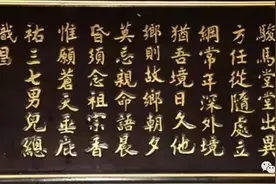 駿馬堂堂出異
方任從隨處立
綱常年深外境
猶吾境日久他
鄉則故鄉朝夕
莫忘親命語晨
昏須念祖宗香
惟願蒼天垂庇
祐三七男兒總
熾昌